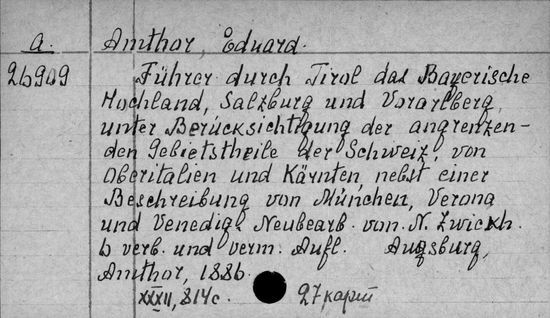 A. Amthor, Eduard.
26909 Führer durch Tirol das Bayerische
Hochland, Salzburg und Vorarlberg,
unter Berücksichtigung der angrenzen-
den Gebietstheile der Schweiz, von
Oberitalien und Kärnten, nebst einer
Beschreibung von München, Verona
und Venedig. Neubearb. von N. Zwickh.
6 verb. und verm. Aufl. Augsburg,
Amthor, 1886.
XXXII, 814 c. 27 карт